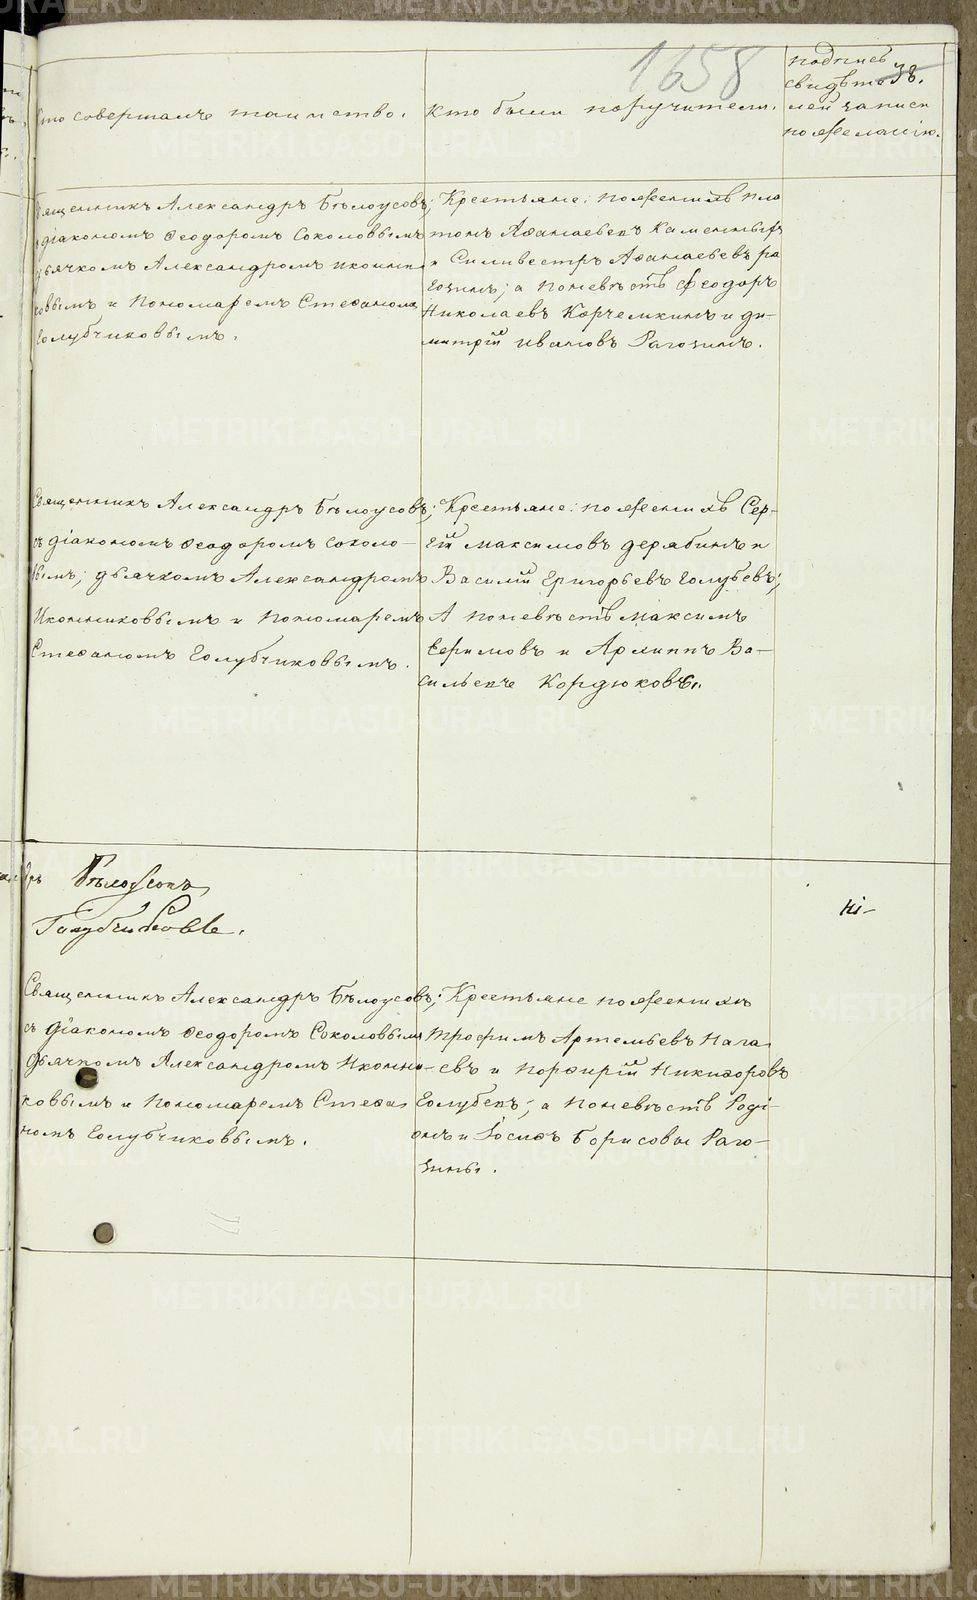 1658
38.
Кто совершалъ таинство.
Кто были поручители.
подпись
свидѣте
лей записи
по желанію.
Священникъ Александръ Бѣлоусовъ;
діакономъ Ѳеодоромъ Соколовымъ
дьячкомъ Александромъ Иконни
ковымъ и Пономаремъ Стефаномъ
Голубчиковымъ.
Крестьяне: по женихѣ Пла
тонъ Аѳанасьевъ Каменныхъ
и Сильвестръ Аѳанасьевъ Ра
гозинъ; а по невѣстѣ Ѳеодоръ
Николаевъ Корчемкинъ и Ди-
митрій Ивановъ Рагозинъ.
Священникъ Александръ Бѣлоусовъ;
съ діакономъ Ѳеодоромъ Соколо-
вымъ; дьячкомъ Александромъ
Иконниковымъ и Пономаремъ
Стефаномъ Голубчиковымъ.
Крестьяне: по женихѣ Сер-
гій Максимовъ Дерябинъ и
Василій Григорьевъ Голубевъ;
А по невѣстѣ Максимъ
Ефимовъ и Архипъ Ва-
сильевъ Кордюковы.
дръ Бѣлоусовъ
Голубчиковъ.
Ні-
Священникъ Александръ Бѣлоусовъ;
съ діакономъ Ѳеодоромъ Соколовымъ
Дьячкомъ Александромъ Иконни-
ковымъ и Пономаремъ Стефа
номъ Голубчиковымъ.
Крестьяне по женихѣ
Трофимъ Артемьевъ Нага
евъ и Порфирій Никифоровъ
Голубевъ; а по невѣстѣ Роді-
онъ и Іосифъ Борисовы Раго-
зины.
METRIKI.GASO-URAL.RU